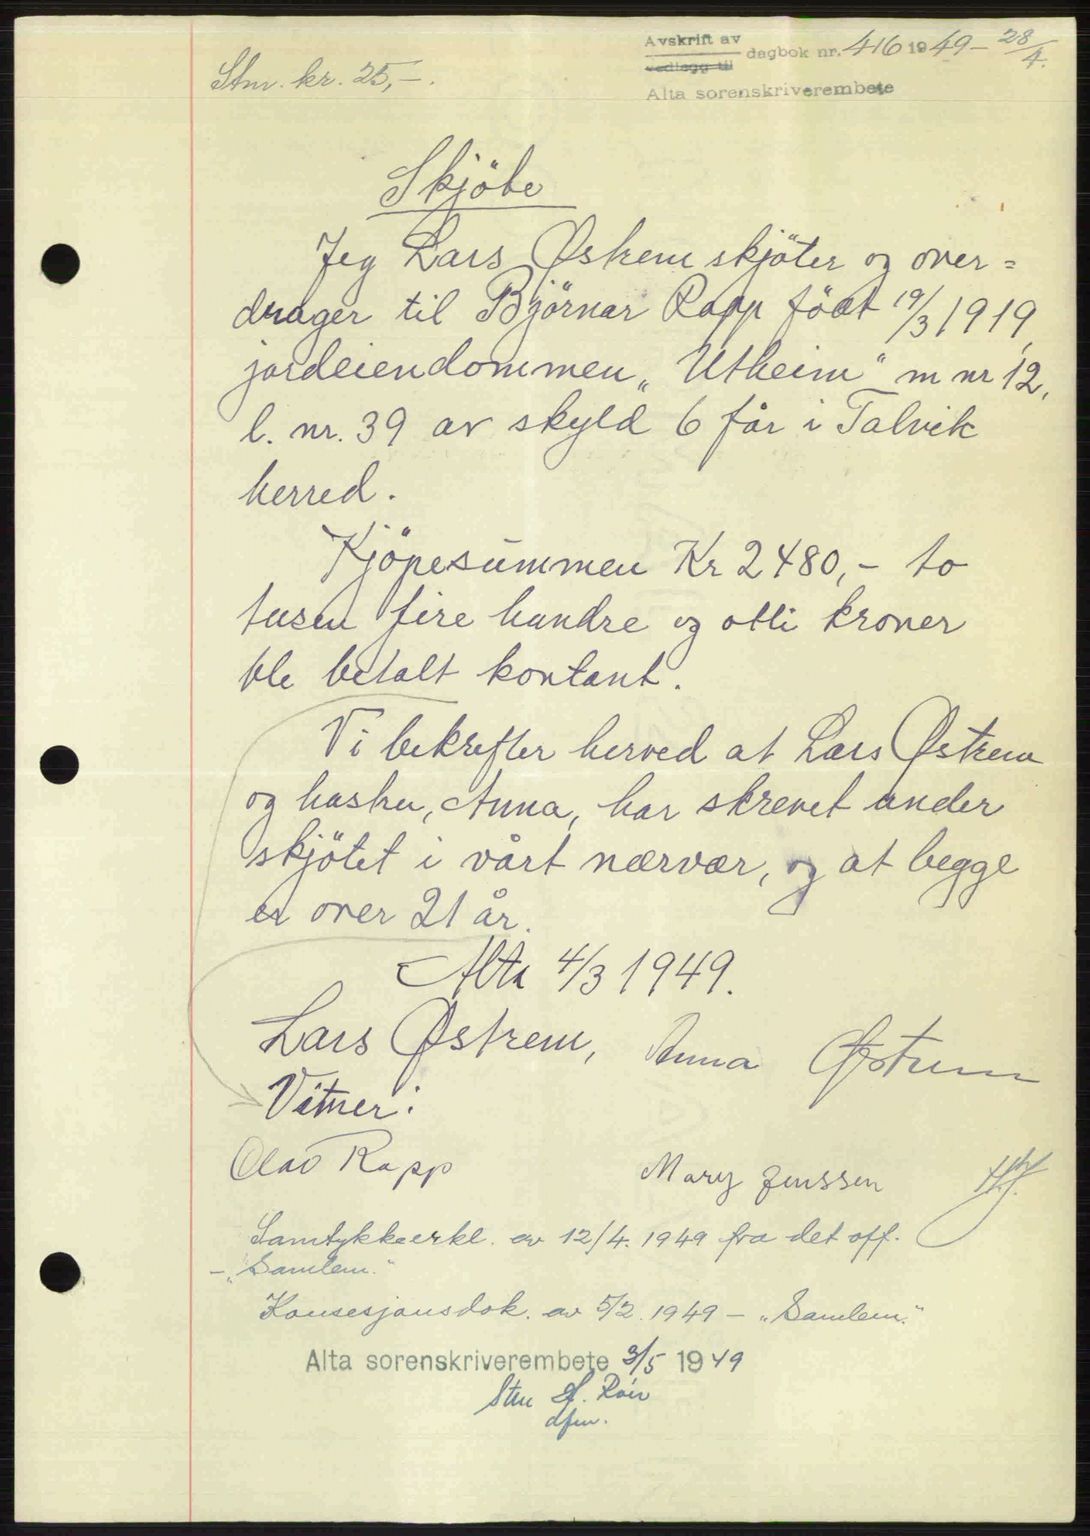 Avskrift av
vedlegg til
dagbok nr. 416 1949 - 28/4.
Alta sorenskriverembete
Stm. kr. 25,-.
Skjöte
Jeg Lars Østrem skjöter og over=
drager til Björnar Rapp födt 19/3 1919,
jordeiendommen „Utheim" m nr 12,
l. nr. 39 av skyld 6 får i Talvik
herred.
Kjöpesummen Kr 2480,- to
tusen fire hundre og otti kroner
ble betalt kontant.
Vi bekrefter herved at Lars Østrem
og hustru, Anna, har skrevet under
skjötet i vårt nærvær, og at begge
er over 21 år.
Alta 4/3 1949.
Lars Østrem, Anna Østrem
Vitner:
Olav Rapp Mary Jenssen
Samtykkeerkl. av 12/4. 1949 fra det off.
- „Samlem."
Konsesjonsdok. av 5/2. 1949 - „Samlem."
Alta sorenskriverembete 3/5 1949
Sten
dfm.